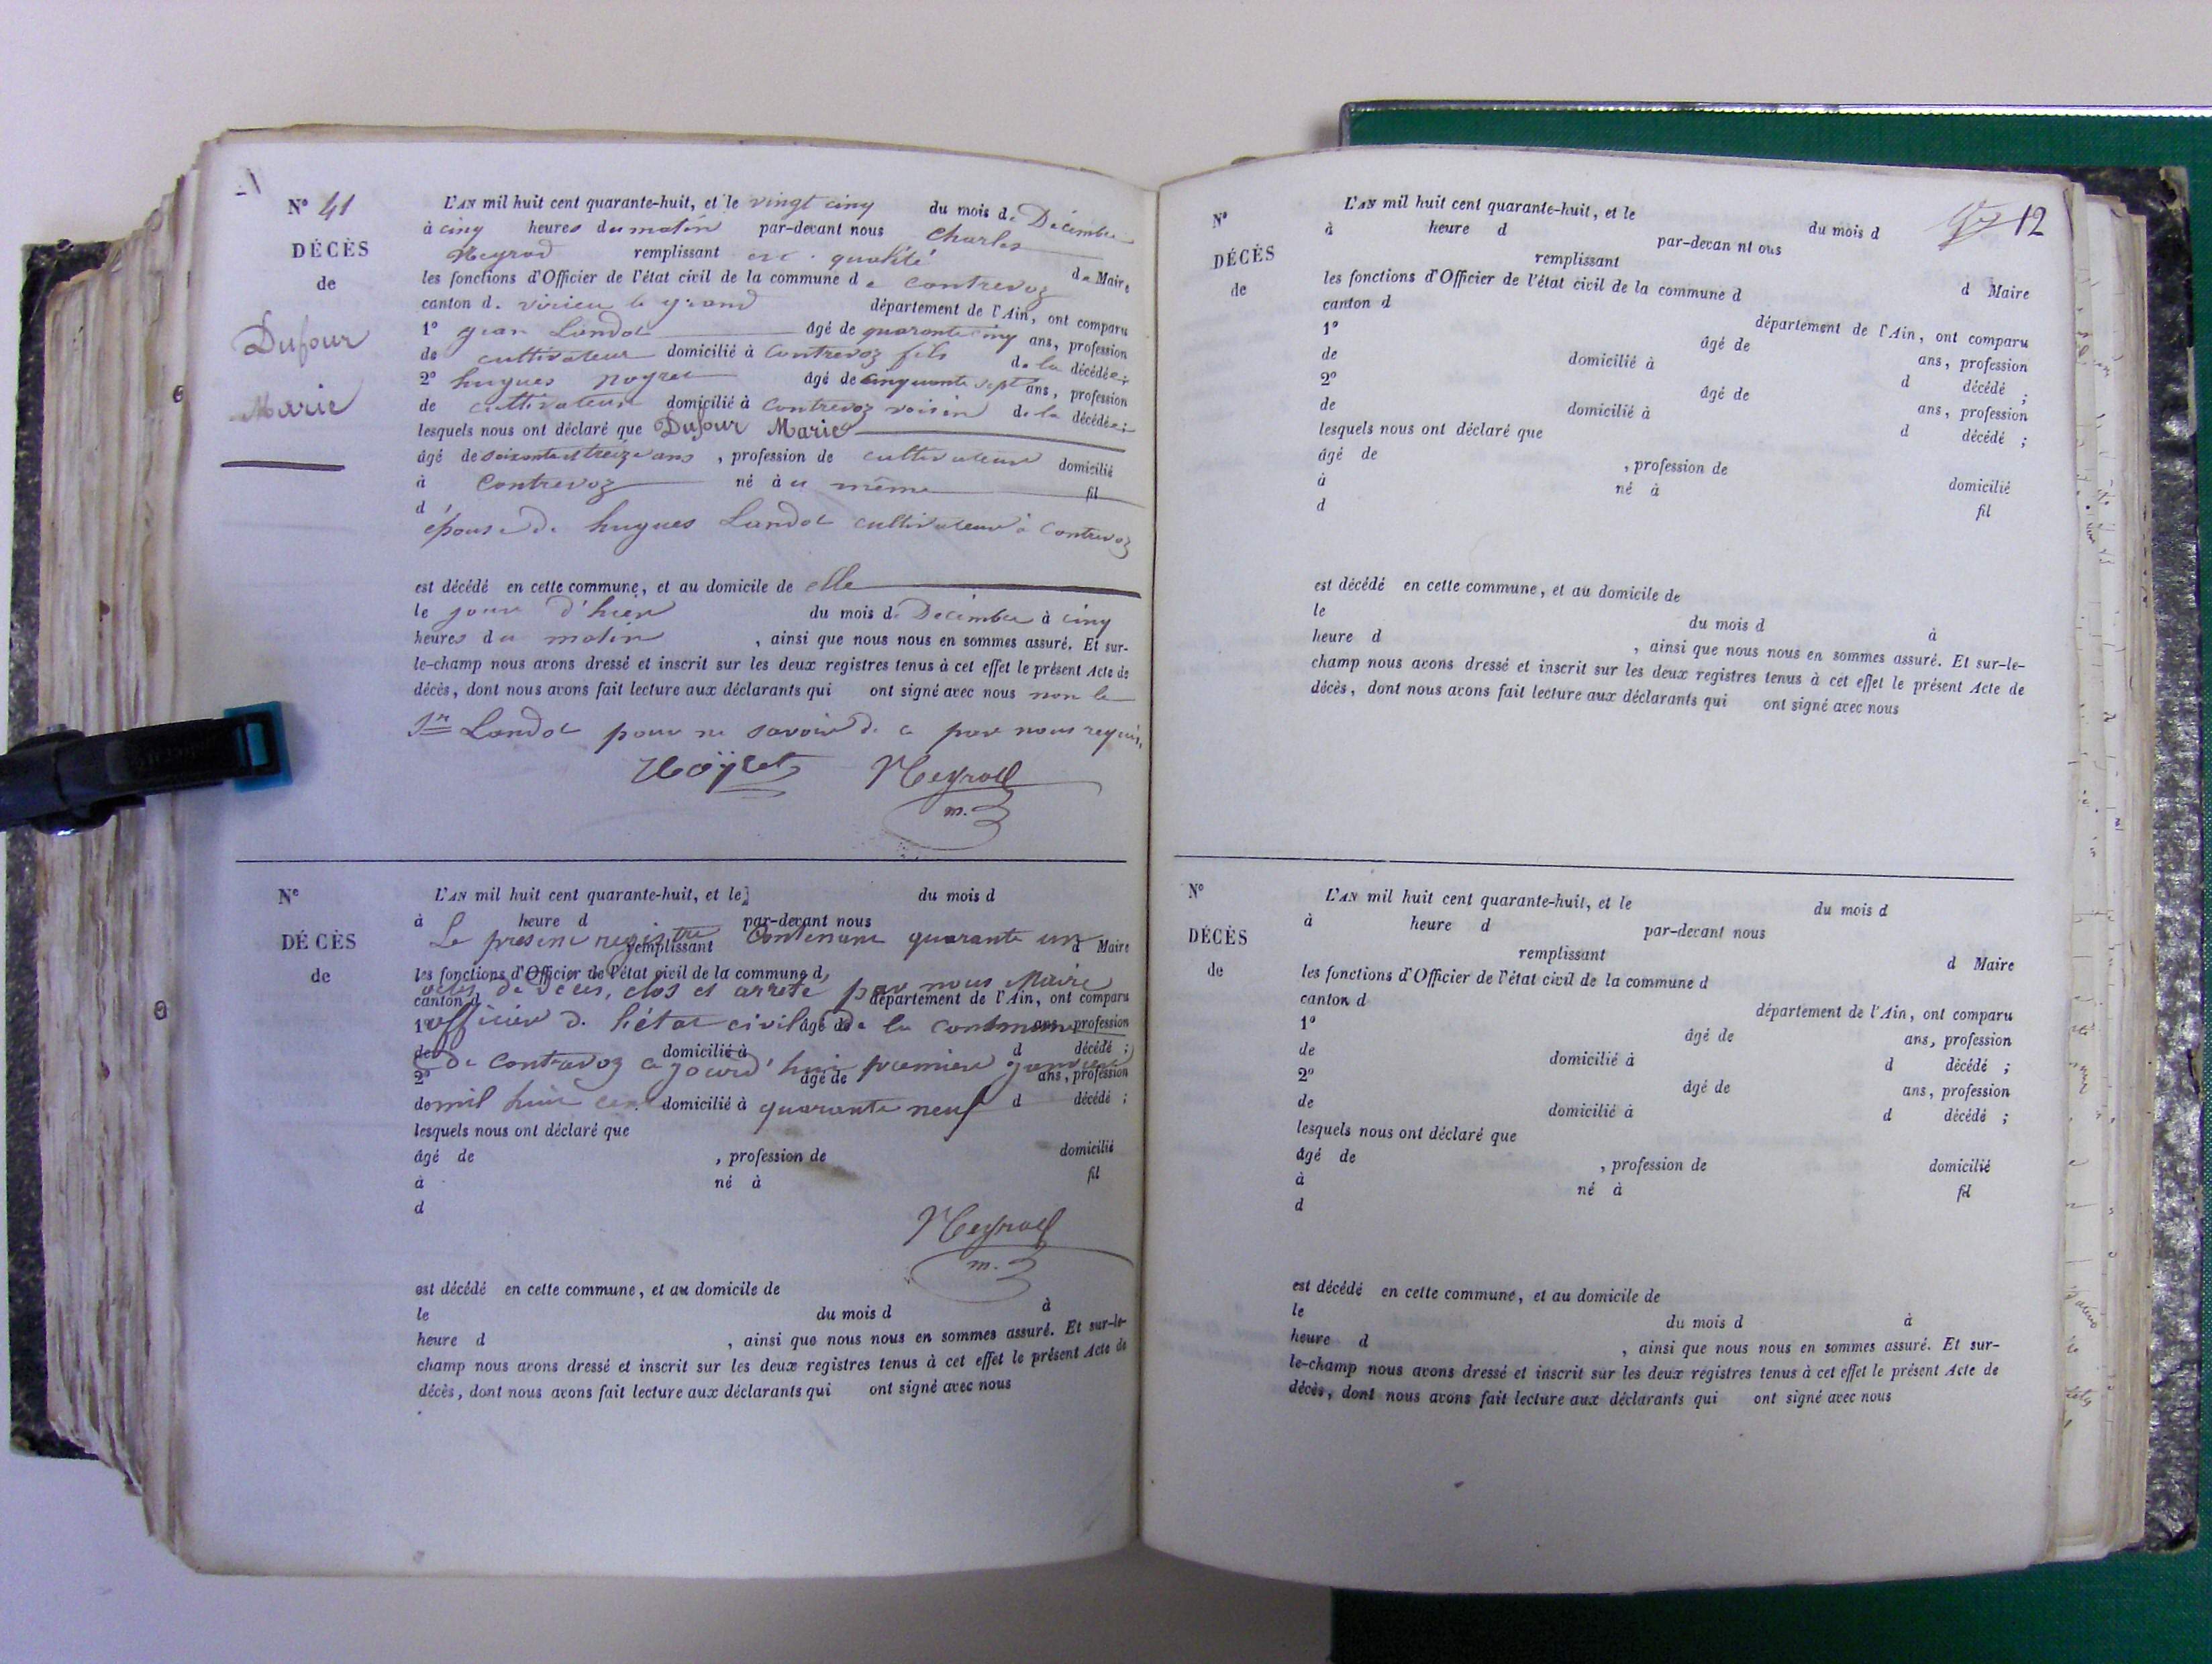 N° 41
DÉCÈS
de
Dufour
Marie
L'AN mil huit cent quarante-huit, et le vingt cinq du mois de Décembre
à cinq heures du matin par-devant nous Charles
Neyrod remplissant en qualité de Maire
les fonctions d'Officier de l'état civil de la commune de Contrevoz
canton d. virieu le grand département de l'Ain, ont comparu
1° jean Landot âgé de quarante cinq ans, profession
de cultivateur domicilié à Contrevoz fils de la décédée;
2° hugues noyret âgé de cinquante sept ans, profession
de cultivateur domicilié à Contrevoz voisin de la décédée;
lesquels nous ont déclaré que Dufour Marie
âgé de soixante et treize ans, profession de cultivateur domicilié
à Contrevoz né à u même fil
d
épouse d. hugues Landot cultivateur à Contrevoz
est décédé en cette commune, et au domicile de elle
le jour d'hier du mois d. Decembre à cinq
heures du matin, ainsi que nous nous en sommes assuré. Et sur-
le-champ nous avons dressé et inscrit sur les deux registres tenus à cet effet le présent Acte de
décès, dont nous avons fait lecture aux déclarants qui ont signé avec nous non le
Sr Landot pour ne savoir d. c par nous requis,
Noÿret Neyrod
m.
N°
DÉCÈS
de
L'AN mil huit cent quarante-huit, et le du mois d
à heure d par-devant nous
Le present registre contenant quarante un
remplissant d Maire
les fonctions d'Officier de l'état civil de la commune d
actes de décès, clos et arreté par nous Maire
canton d département de l'Ain, ont comparu
officier d. l'état civil de la commune
1° âgé de ans, profession
de domicilié à d décédé ;
de Contrevoz ce jourd'hui premiere janvier
2° âgé de ans, profession
mil huit cent quarante neuf
de domicilié à d décédé ;
lesquels nous ont déclaré que
âgé de , profession de domicilié
à né à fil
d
Neyrod
m.
est décédé en cette commune, et au domicile de
le du mois d à
heure d , ainsi que nous nous en sommes assuré. Et sur-le-
champ nous avons dressé et inscrit sur les deux registres tenus à cet effet le présent Acte de
décès, dont nous avons fait lecture aux déclarants qui ont signé avec nous
12
N°
DÉCÈS
de
L'AN mil huit cent quarante-huit, et le du mois d
à heure d par-devan nt ous
remplissant d Maire
les fonctions d'Officier de l'état civil de la commune d
canton d département de l'Ain, ont comparu
1° âgé de ans, profession
de domicilié à d décédé ;
2° âgé de ans, profession
de domicilié à d décédé ;
lesquels nous ont déclaré que
âgé de , profession de domicilié
à né à fil
d
est décédé en cette commune, et au domicile de
le du mois d à
heure d , ainsi que nous nous en sommes assuré. Et sur-le-
champ nous avons dressé et inscrit sur les deux registres tenus à cet effet le présent Acte de
décès, dont nous avons fait lecture aux déclarants qui ont signé avec nous
N°
DÉCÈS
de
L'AN mil huit cent quarante-huit, et le du mois d
à heure d par-devant nous
remplissant d Maire
les fonctions d'Officier de l'état civil de la commune d
canton d département de l'Ain, ont comparu
1° âgé de ans, profession
de domicilié à d décédé ;
2° âgé de ans, profession
de domicilié à d décédé ;
lesquels nous ont déclaré que
âgé de , profession de domicilié
à né à fil
d
est décédé en cette commune, et au domicile de
le du mois d à
heure d , ainsi que nous nous en sommes assuré. Et sur-
le-champ nous avons dressé et inscrit sur les deux registres tenus à cet effet le présent Acte de
décès, dont nous avons fait lecture aux déclarants qui ont signé avec nous